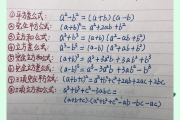 ①平方差公式: a²-b²=(a+b)(a-b)
②完全平方公式: (a+b)²=a²+2ab+b²
③立方和公式: a³+b³=(a+b)(a²-ab+b²)
④立方差公式: a³-b³=(a-b)(a²+ab+b²)
⑤完全立方和公式: (a+b)³=a³+3a²b+3ab²+b³
⑥完全立方差公式: (a-b)³=a³-3a²b+3ab²-b³
⑦三项完全平方公式: (a+b+c)²=a²+b²+c²+2ab+2bc+2ac
⑧三项立方和公式: a³+b³+c³-3abc=
(a+b+c)(a²+b²+c²-ab-bc-ac)